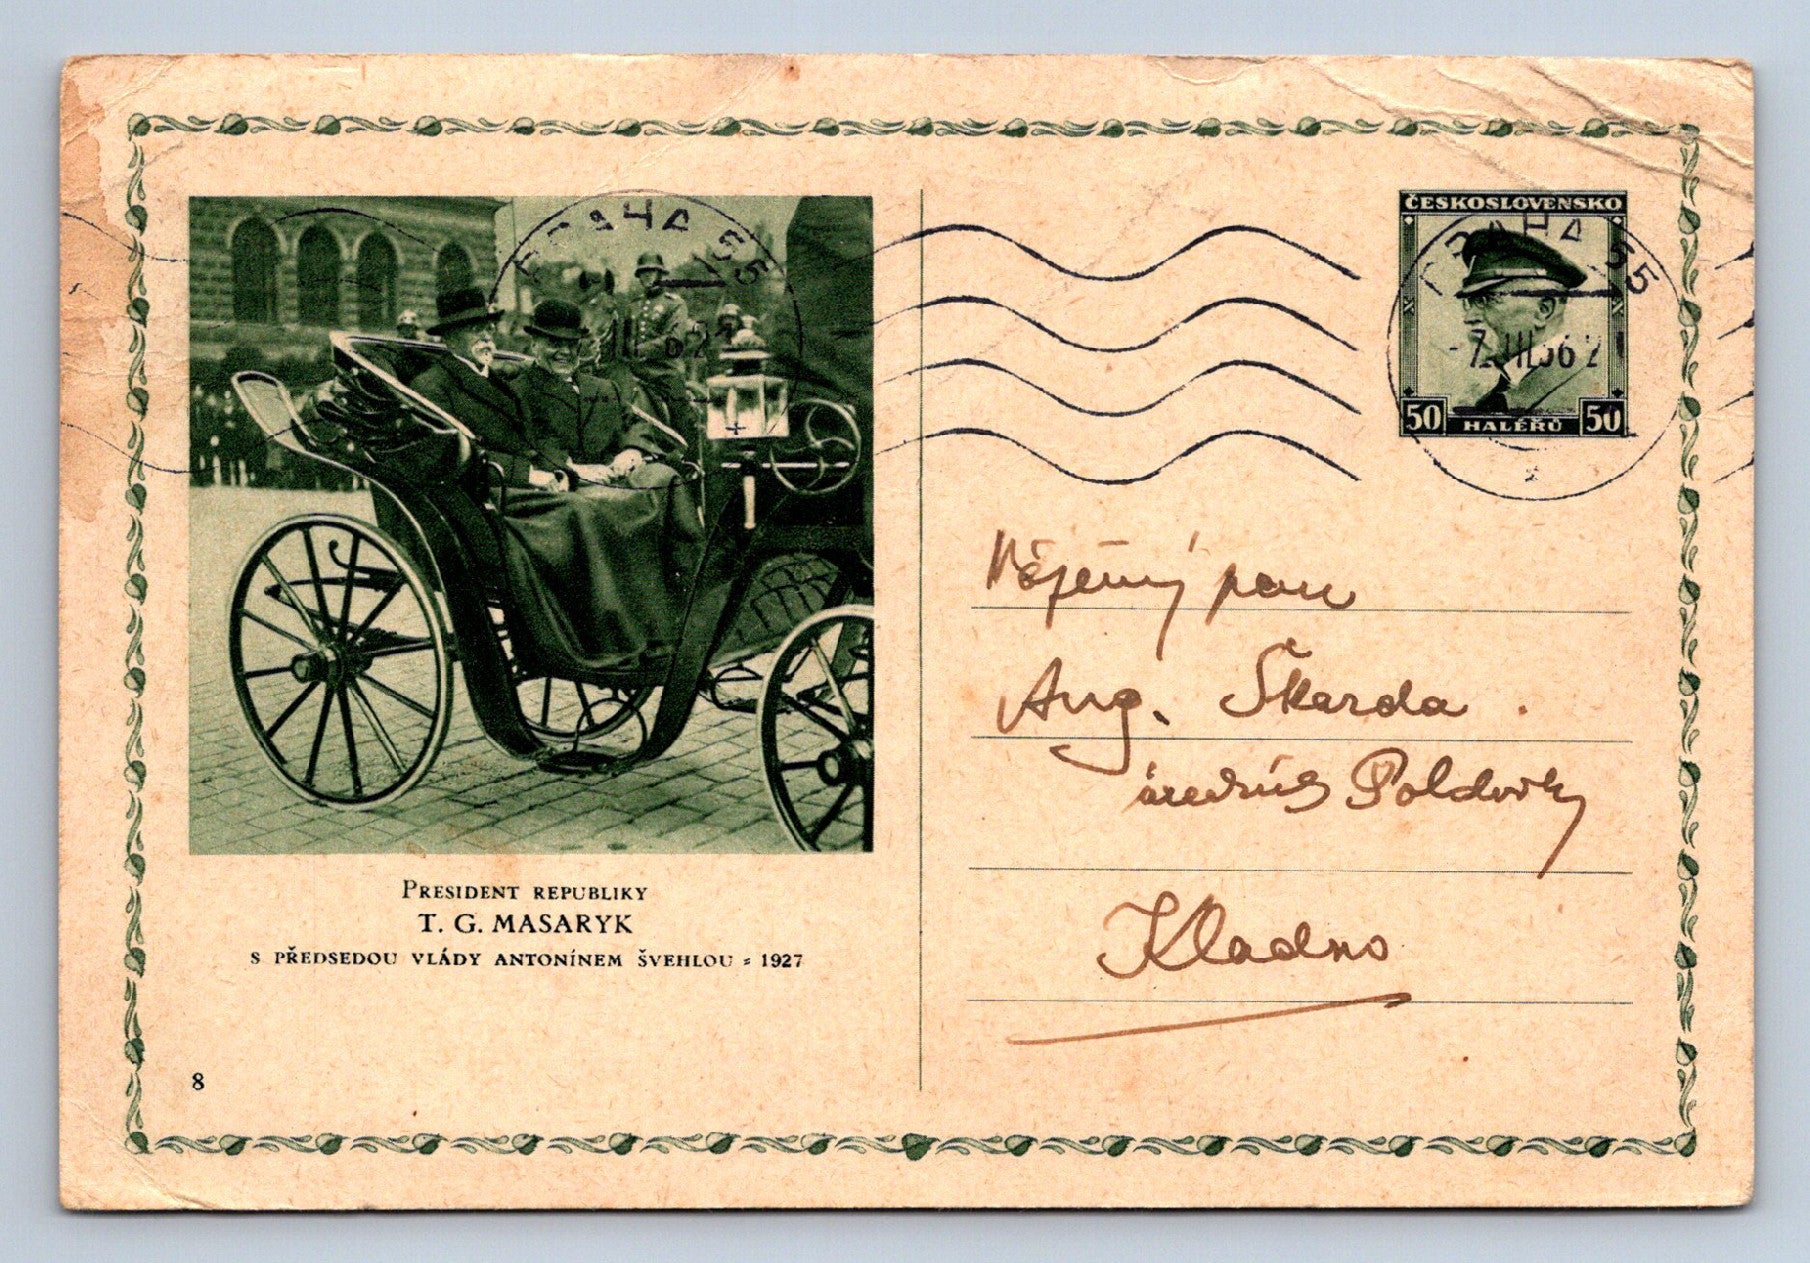 PRESIDENT REPUBLIKY
T. G. MASARYK
S PŘEDSEDOU VLÁDY ANTONÍNEM ŠVEHLOU = 1927
8
PRAHA 55
ČESKOSLOVENSKO
PRAHA 55
-7.III.36
50 HALÉŘŮ 50
Vážený pan
Aug. Škarda
úředník Poldovky
Kladno